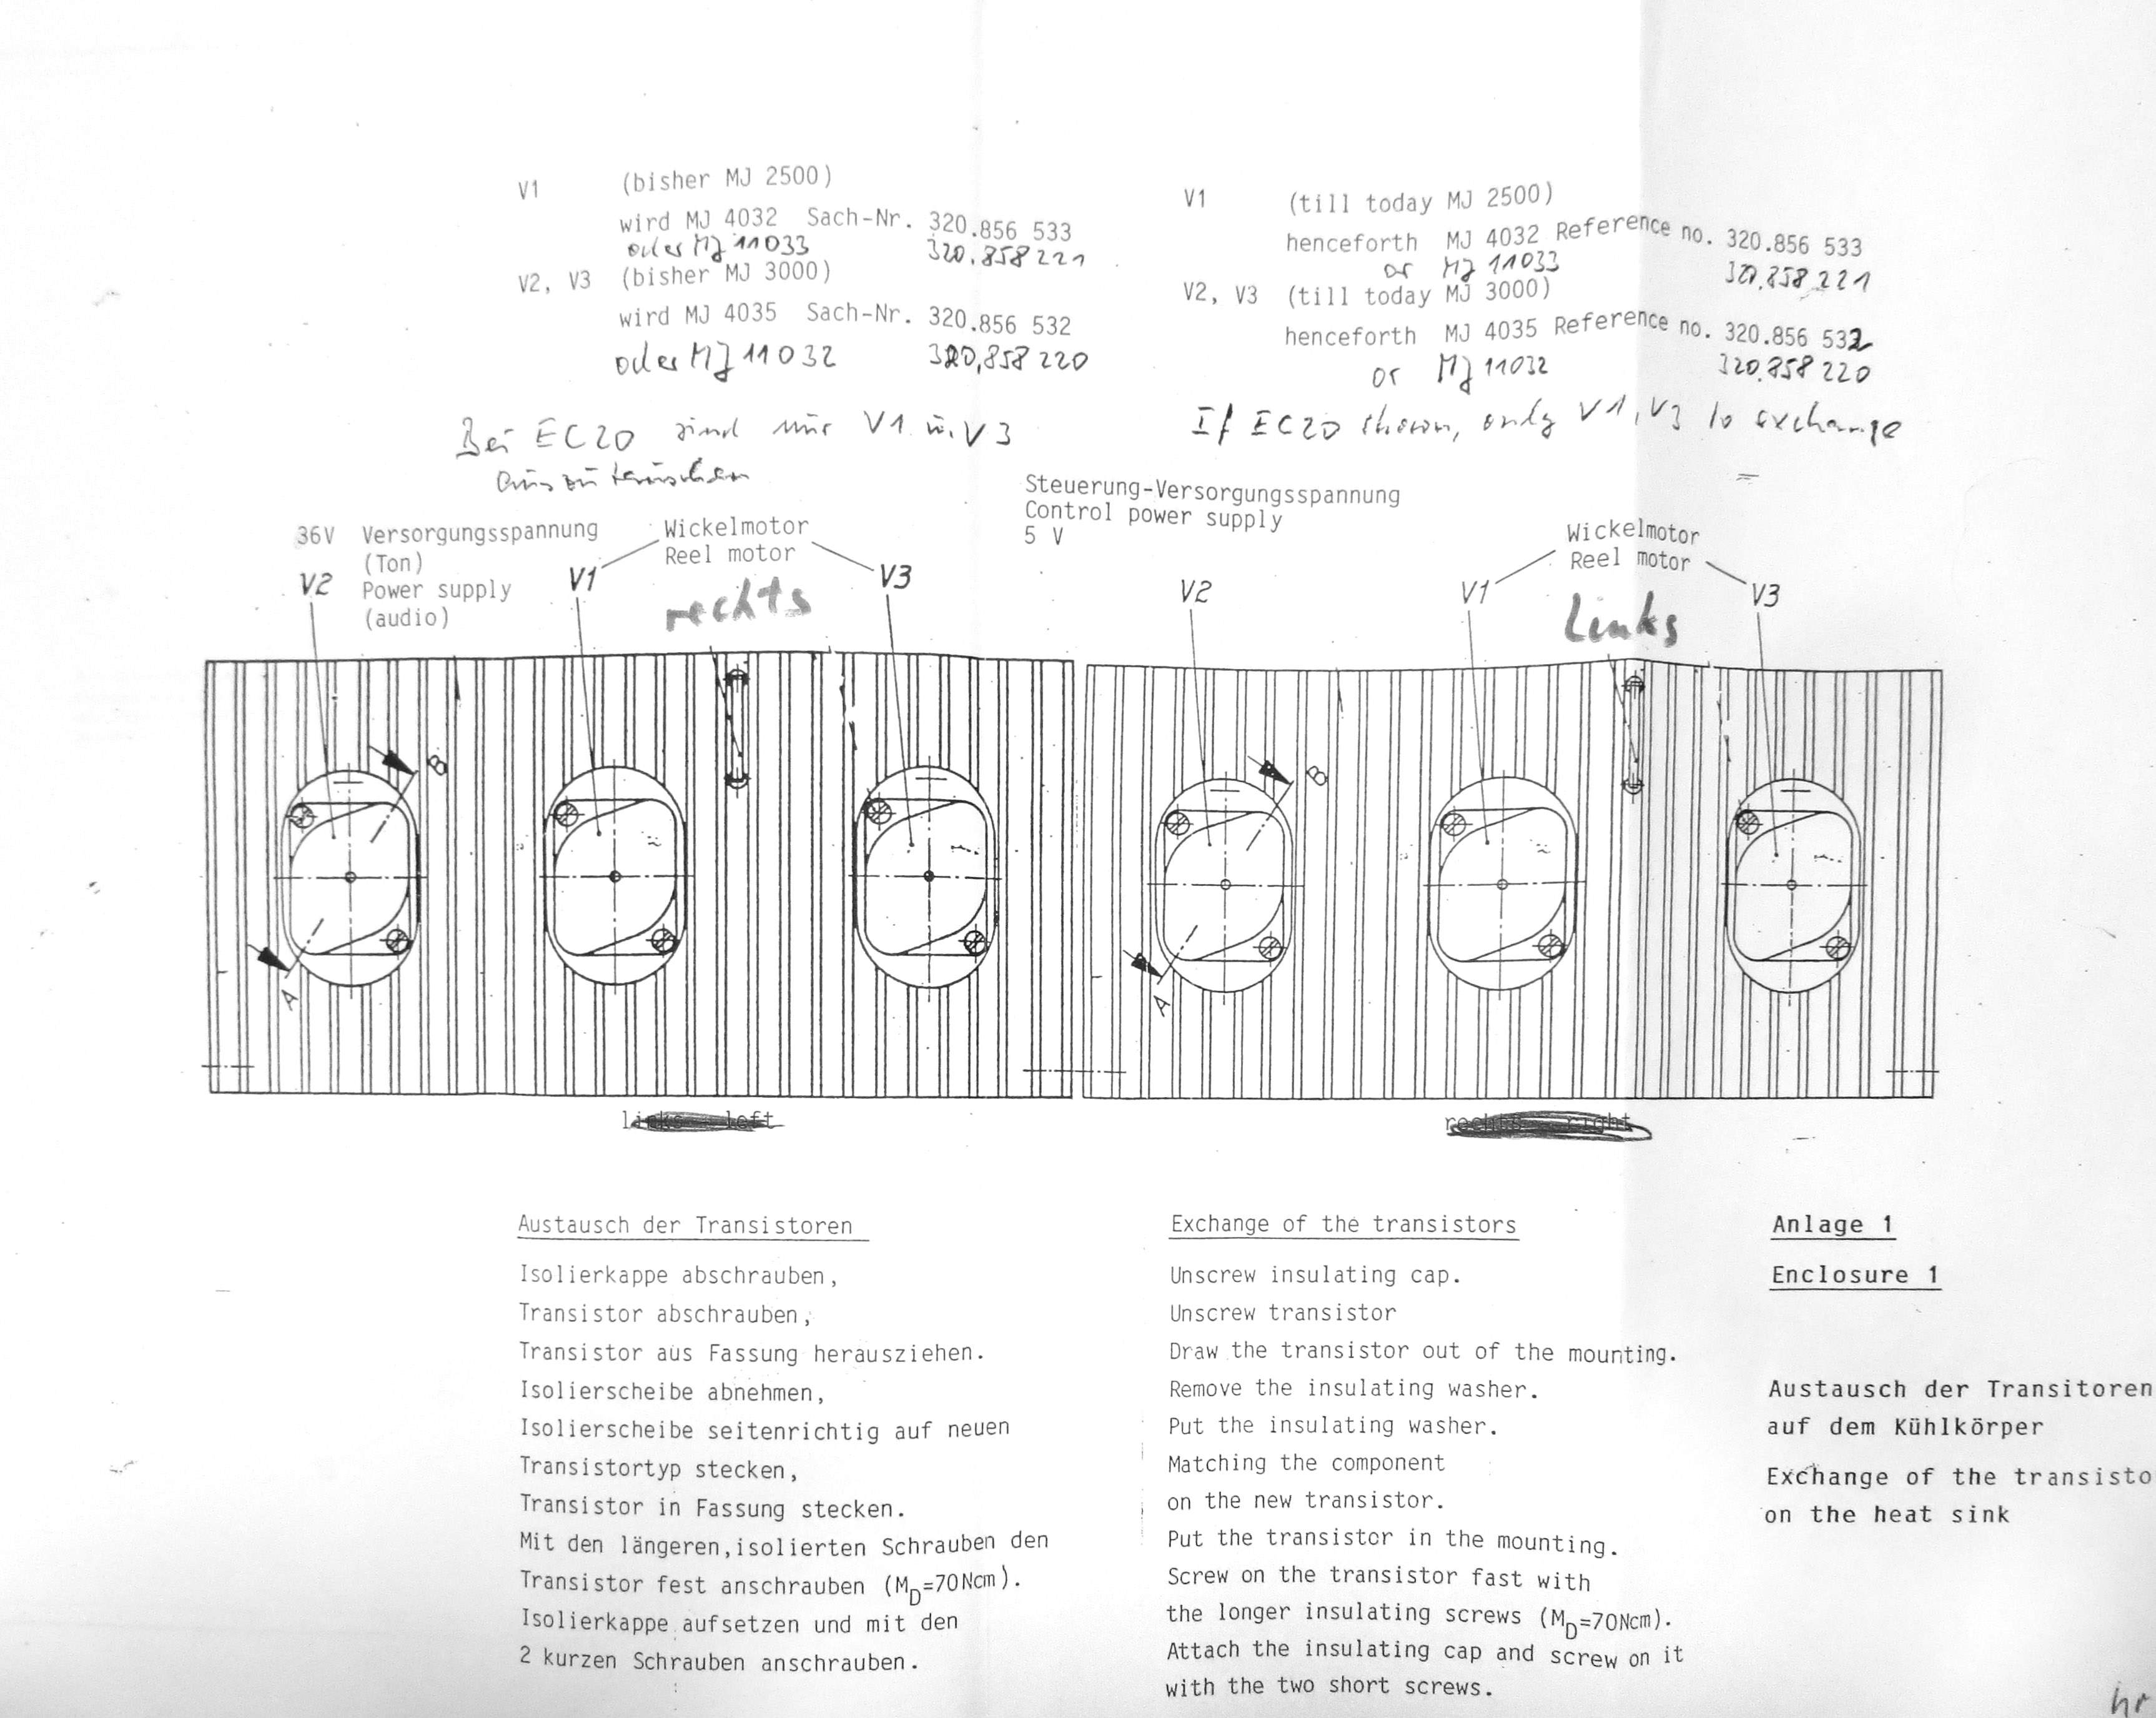 V1 (bisher MJ 2500)
wird MJ 4032 Sach-Nr. 320.856 533
oder MJ 11033 320.858 221
V2, V3 (bisher MJ 3000)
wird MJ 4035 Sach-Nr. 320.856 532
oder MJ 11032 320,858 220
Bei EC20 sind nur V1 u. V3
auszutauschen
V1 (till today MJ 2500)
henceforth MJ 4032 Reference no. 320.856 533
or MJ 11033 320.858 221
V2, V3 (till today MJ 3000)
henceforth MJ 4035 Reference no. 320.856 532
or MJ 11032 320.858 220
If EC20 shown, only V1, V3 to exchange
36V Versorgungsspannung
(Ton)
V2 Power supply
(audio)
Wickelmotor
Reel motor
V1 V3
rechts
Steuerung-Versorgungsspannung
Control power supply
5 V
V2
Wickelmotor
Reel motor
V1 V3
Links
B
A
B
A
links - left
rechts - right
Austausch der Transistoren
Isolierkappe abschrauben,
Transistor abschrauben,
Transistor aus Fassung herausziehen.
Isolierscheibe abnehmen,
Isolierscheibe seitenrichtig auf neuen
Transistortyp stecken,
Transistor in Fassung stecken.
Mit den längeren,isolierten Schrauben den
Transistor fest anschrauben (MD=70Ncm).
Isolierkappe aufsetzen und mit den
2 kurzen Schrauben anschrauben.
Exchange of the transistors
Unscrew insulating cap.
Unscrew transistor
Draw the transistor out of the mounting.
Remove the insulating washer.
Put the insulating washer.
Matching the component
on the new transistor.
Put the transistor in the mounting.
Screw on the transistor fast with
the longer insulating screws (MD=70Ncm).
Attach the insulating cap and screw on it
with the two short screws.
Anlage 1
Enclosure 1
Austausch der Transitoren
auf dem Kühlkörper
Exchange of the transisto
on the heat sink
hr